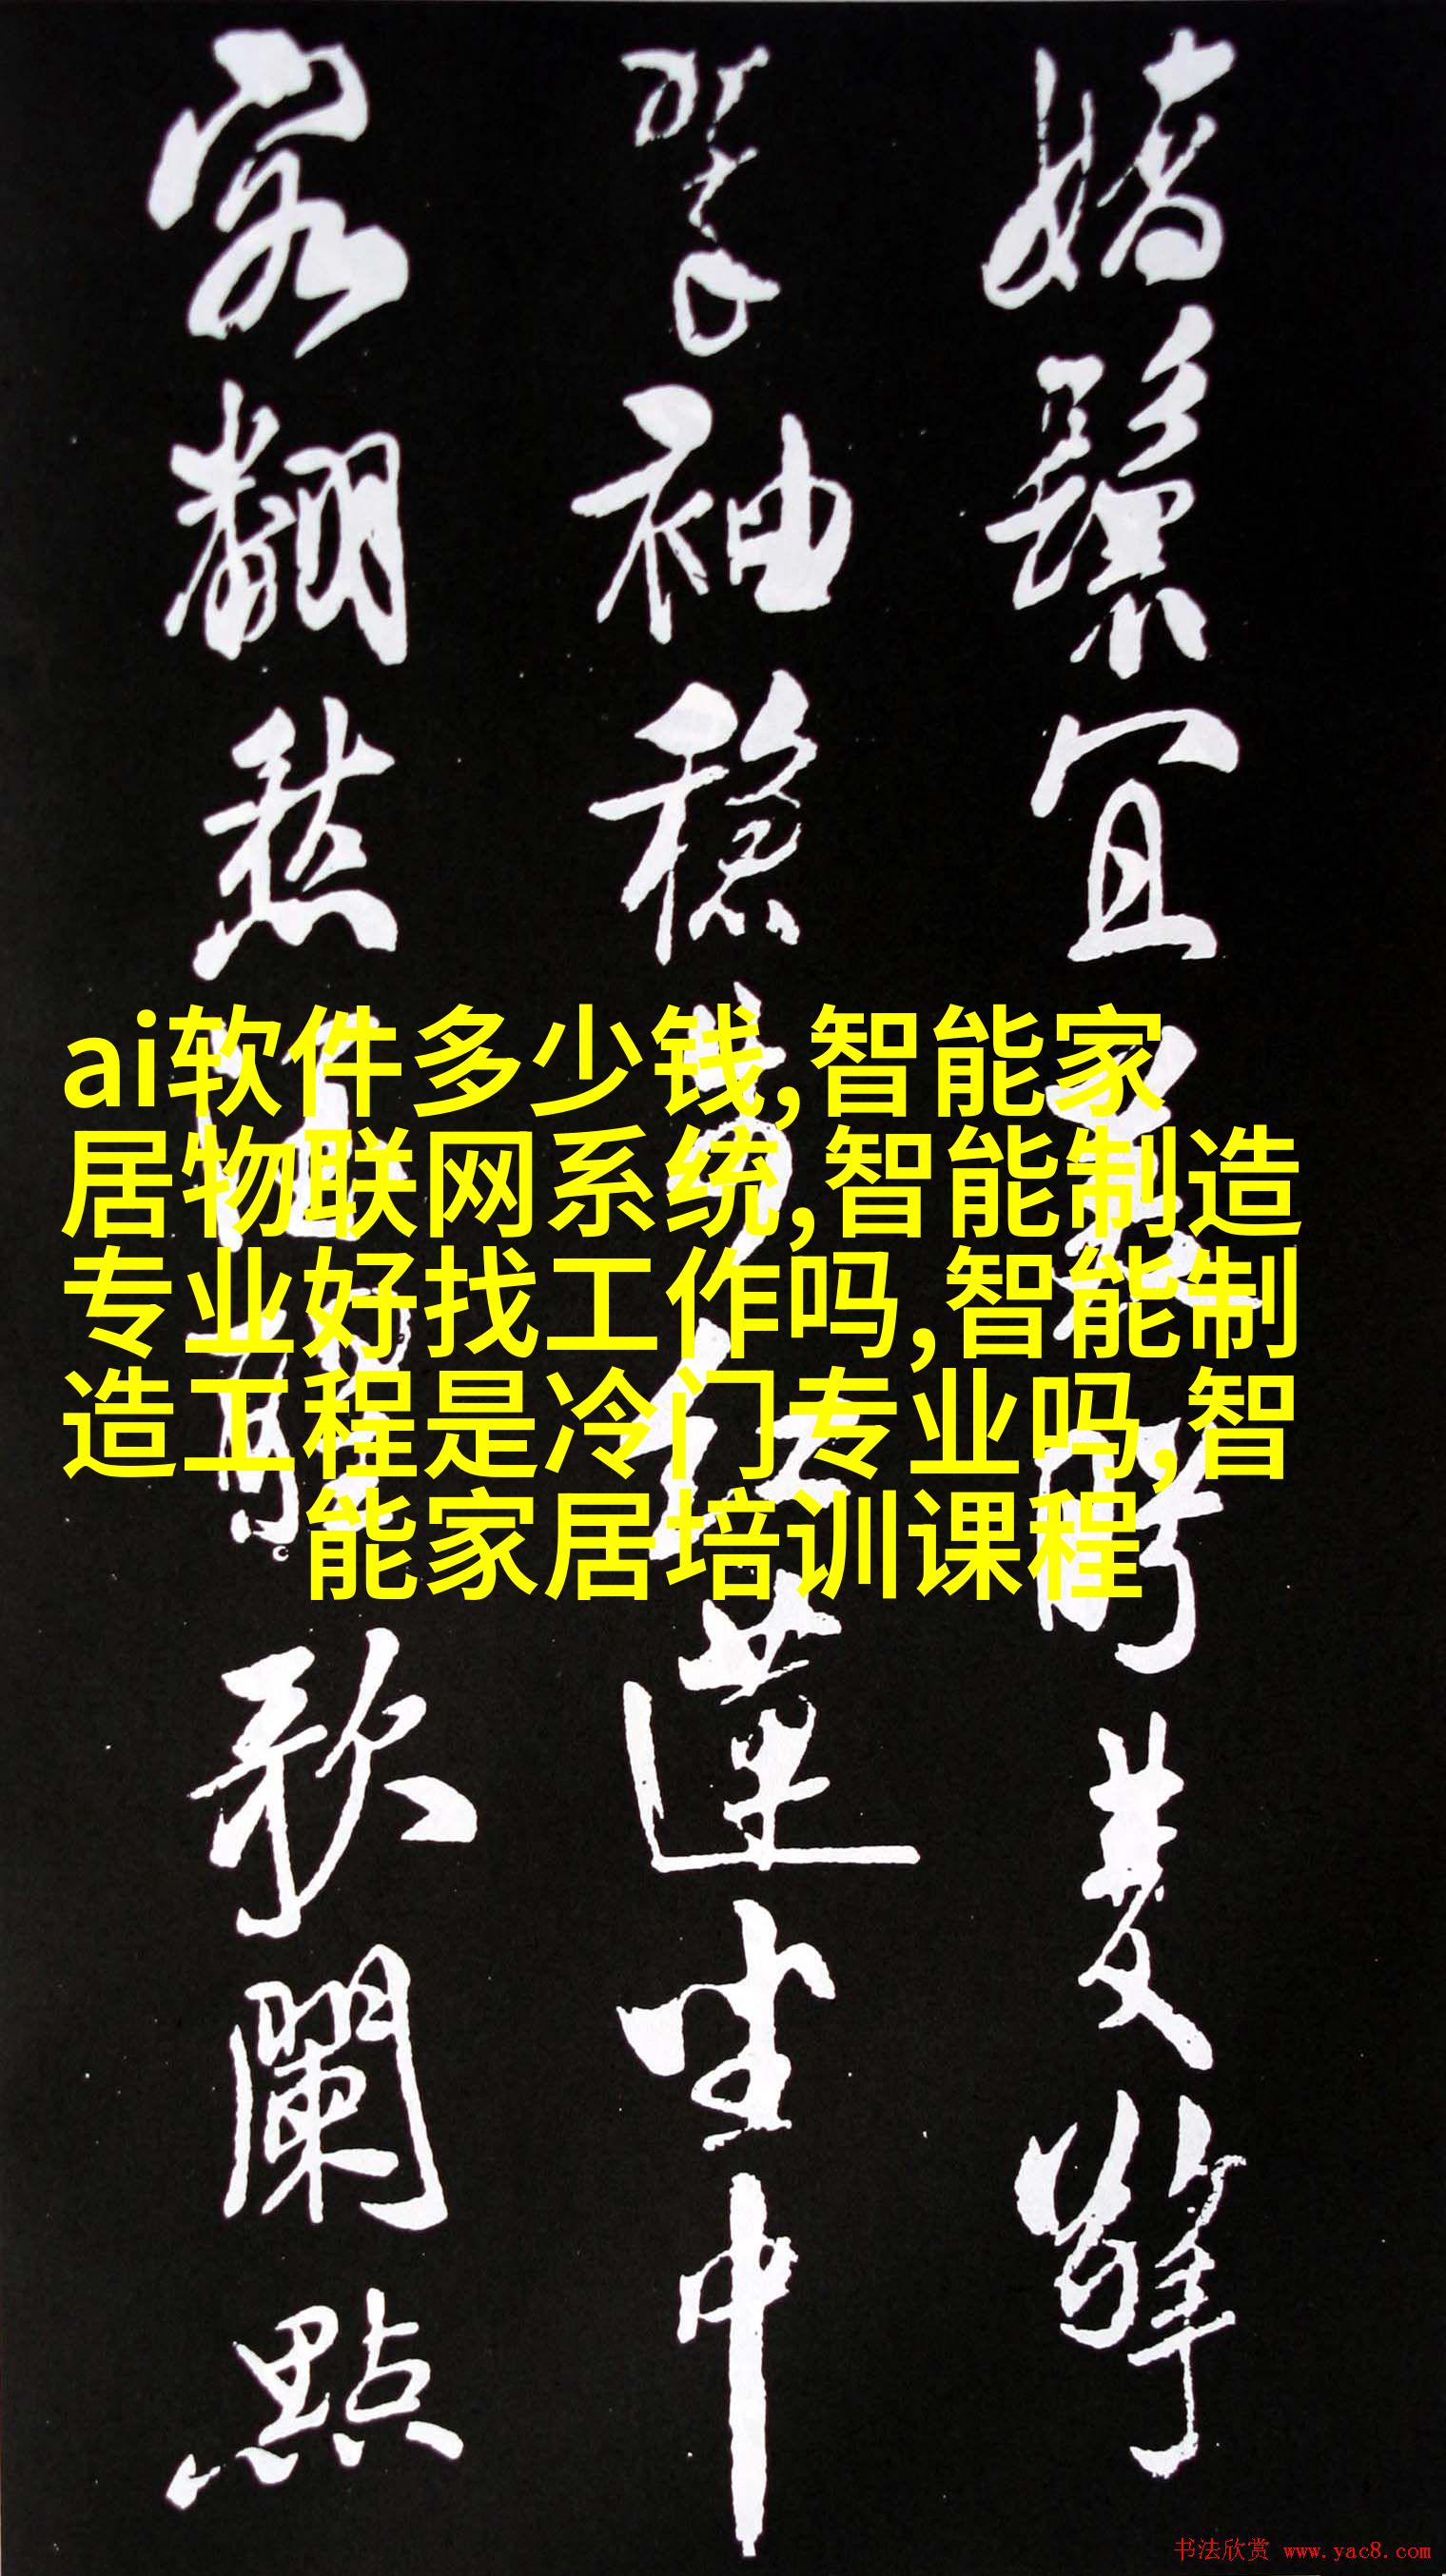 嬌鬟宜
美擎
翠袖穩
蓮坐中
客翻愁
歌闌點
ai软件多少钱,智能家
居物联网系统,智能制造
专业好找工作吗,智能制
造工程是冷门专业吗,智
能家居培训课程
书法欣赏 www.yac8.com